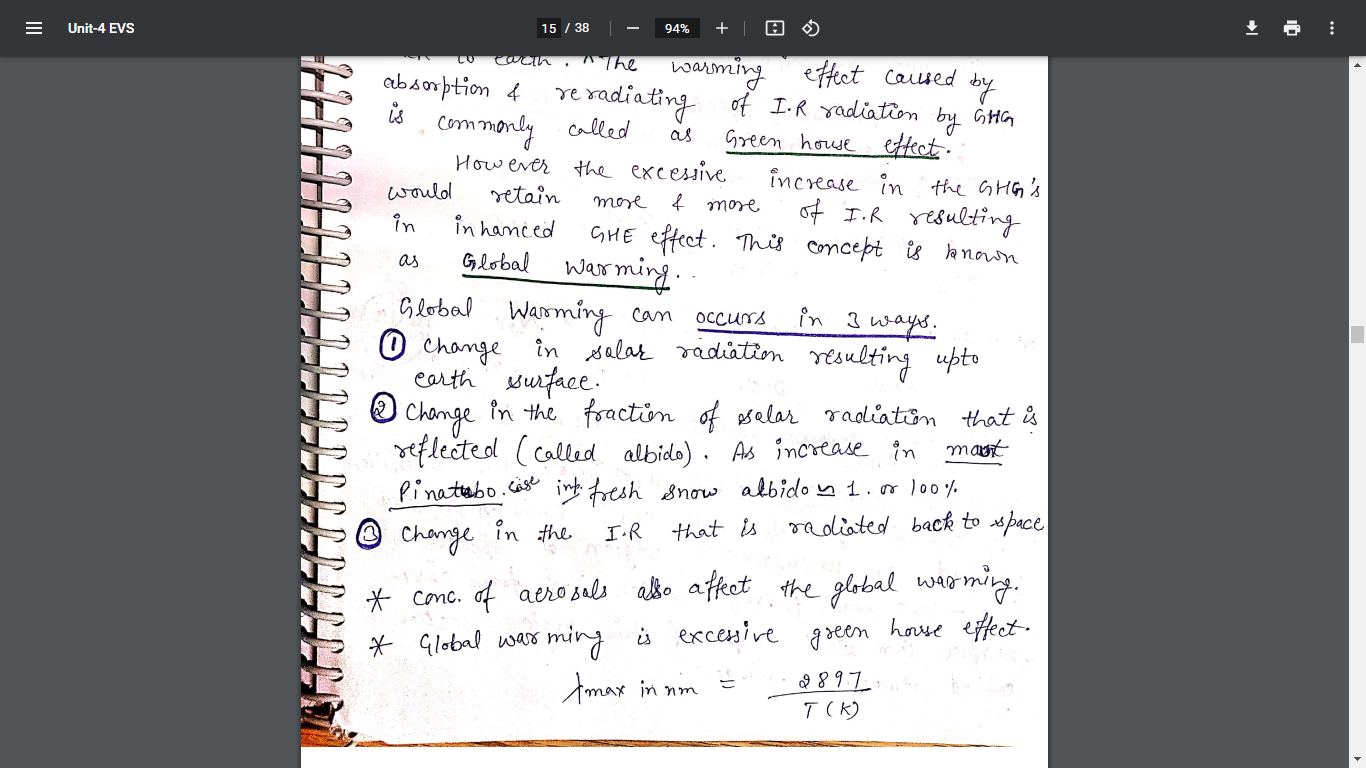 Unit-4 EVS
15 / 38
94%
to earth. The warming effect caused by
absorption & reradiating of I.R radiation by GHG
is commonly called as Green house effect.
However the excessive increase in the GHG's
would retain more & more of I.R resulting
in inhanced GHE effect. This concept is known
as Global Warming..
Global Warming can occurs in 3 ways.
① Change in solar radiation resulting upto
earth surface.
② Change in the fraction of solar radiation that is
reflected (called albido). As increase in
Pinatubo. case imp. fresh snow albido ≃ 1. or 100%
③ Change in the I.R that is radiated back to space
* conc. of aerosals also affect the global warming.
* Global warming is excessive green house effect.
λmax in nm = 2897
T(K)